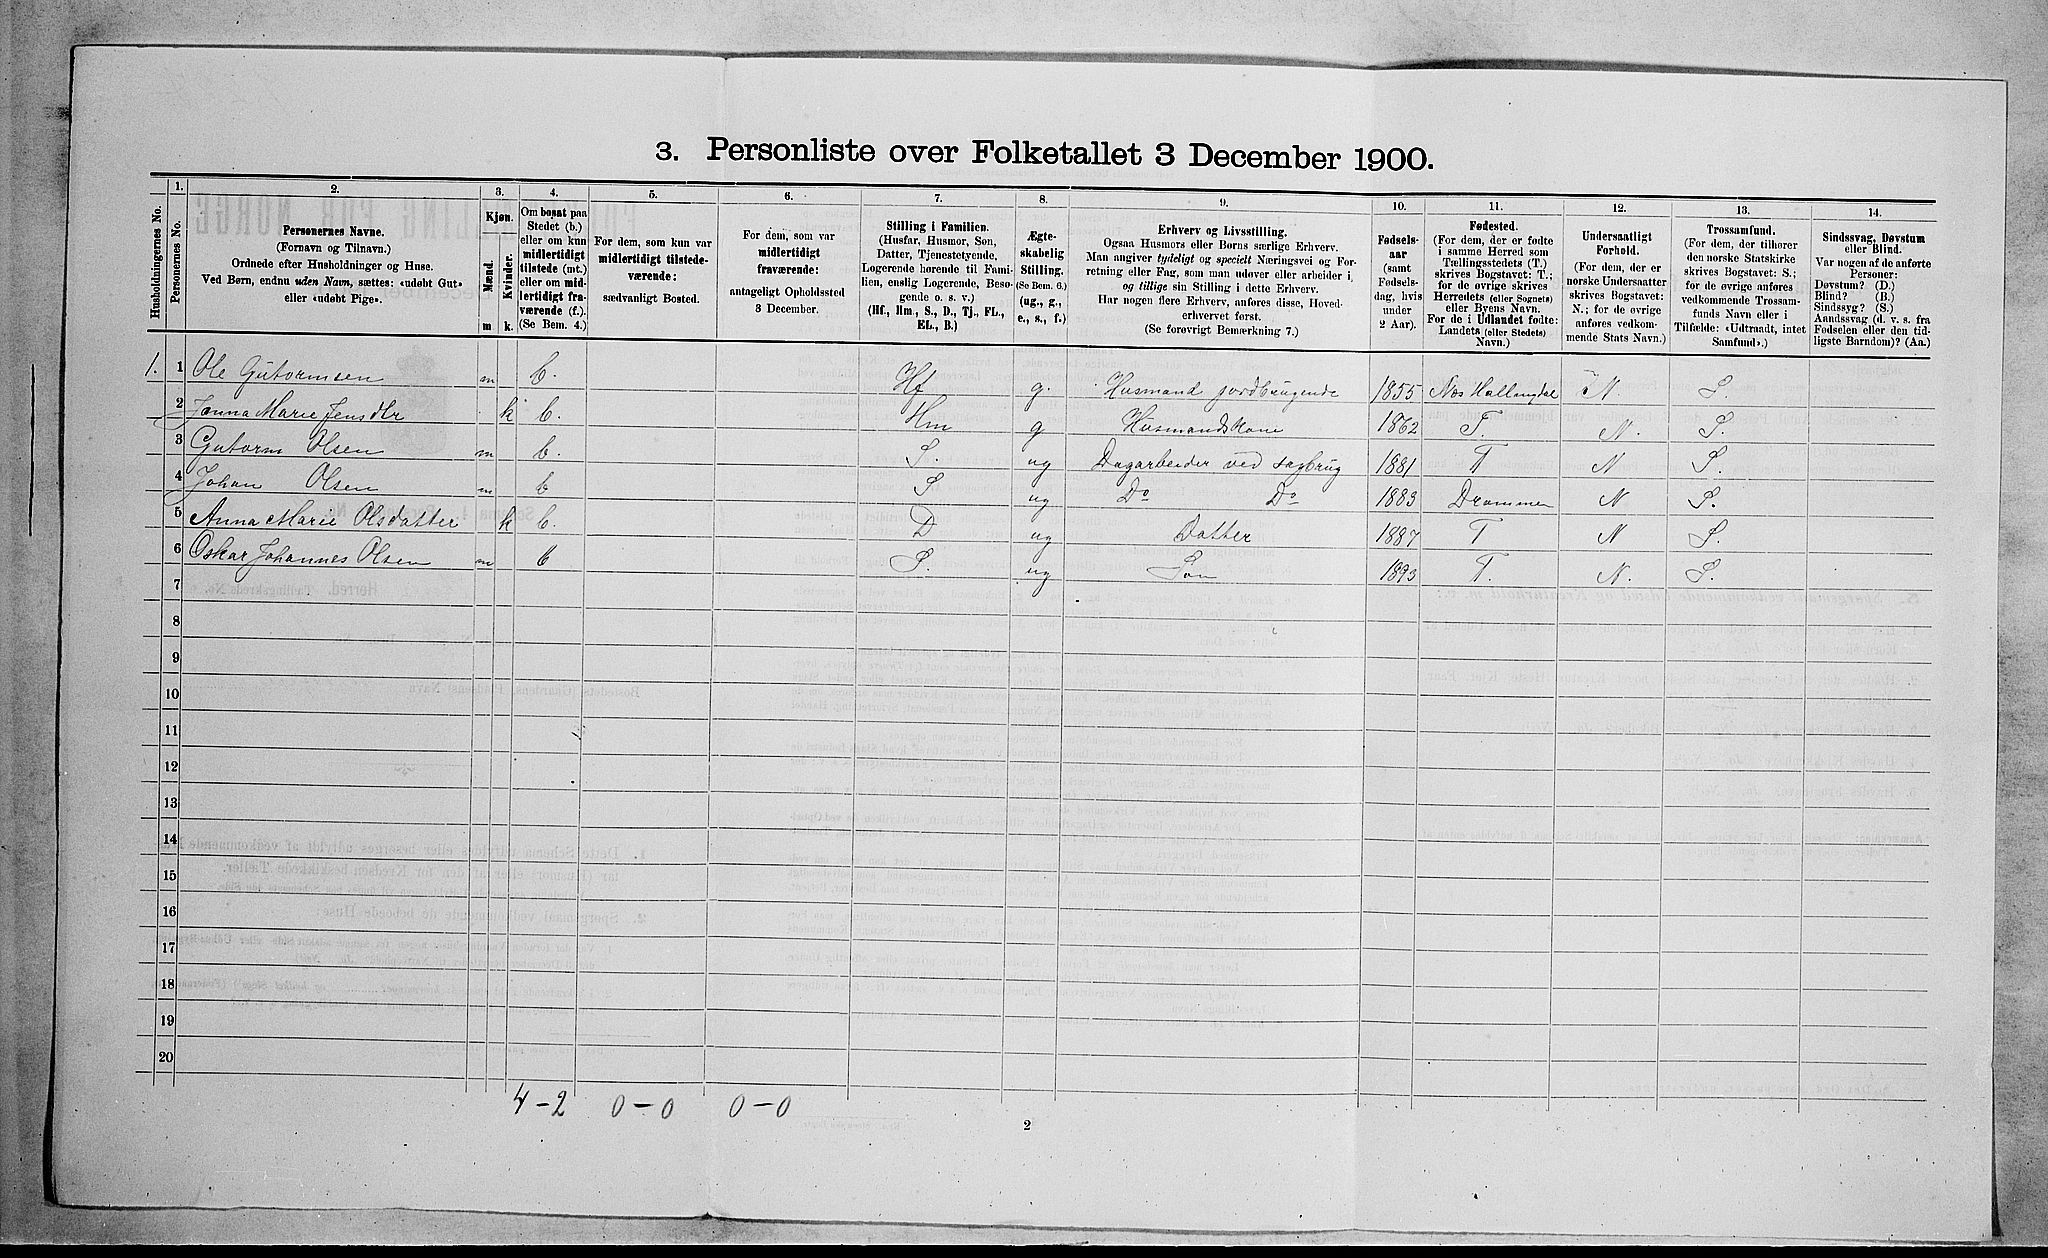 3. Personliste over Folketallet 3 December 1900.
Husholdningernes No.
1. Personernes No.
2. Personernes Navne. (Fornavn og Tilnavn.) Ordnede efter Husholdninger og Huse. Ved Børn, endnu uden Navn, sættes: «udøbt Gut» eller «udøbt Pige».
3. Kjøn. Mænd. m Kvinder. k.
4. Om bosat paa Stedet (b.) eller om kun midlertidigt tilstede (mt.) eller om midlertidigt fraværende (f.). (Se Bem. 4.)
5. For dem, som kun var midlertidigt tilstedeværende: sædvanligt Bosted.
6. For dem, som var midlertidigt fraværende: antageligt Opholdssted 3 December.
7. Stilling i Familien. (Husfar, Husmor, Søn, Datter, Tjenestetyende, Logerende hørende til Familien, enslig Logerende, Besøgende o. s. v.) (Hf., Hm., S., D., Tj., FL., EL., B.)
8. Ægteskabelig Stilling. (Se Bem. 6.) (ug., g., e., s., f.)
9. Erhverv og Livsstilling. Ogsaa Husmors eller Børns særlige Erhverv. Man angiver tydeligt og specielt Næringsvei og Forretning eller Fag, som man udøver eller arbeider i, og tillige sin Stilling i dette Erhverv. Har nogen flere Erhverv, anføres disse, Hovederhvervet først. (Se forøvrigt Bemærkning 7.)
10. Fødselsaar (samt Fødselsdag, hvis under 2 Aar).
11. Fødested. (For dem, der er fødte i samme Herred som Tællingsstedets (T.) skrives Bogstavet: T.; for de øvrige skrives Herredets (eller Sognets) eller Byens Navn. For de i Udlandet fødte: Landets (eller Stedets) Navn.)
12. Undersaatligt Forhold. (For dem, der er norske Undersaatter skrives Bogstavet: N.; for de øvrige anføres vedkommende Stats Navn.)
13. Trossamfund. (For dem, der tilhører den norske Statskirke skrives Bogstavet: S.; for de øvrige anføres vedkommende Trossamfunds Navn eller i Tilfælde: «Udtraadt, intet Samfund».)
14. Sindssvag, Døvstum eller Blind. Var nogen af de anførte Personer: Døvstum? (D.) Blind? (B.) Sindssyg? (S.) Aandssvag (d. v. s. fra Fødselen eller den tidligste Barndom)? (Aa.)
1. 1 Ole Gutormsen m b. Hf g. Husmand jordbrugende 1855 Næs Hallingdal N. S.
2 Janna Marie Jensdtr k b. Hm g Husmandskone 1862 T. N. S.
3 Gutorm Olsen m b. S. ug Dagarbeider ved sagbrug 1881 T N S.
4 Johan Olsen m b S ug Do Do 1883 Drammen N S.
5 Anna Marie Olsdatter k b. D ug Datter 1887 T N S.
6 Oskar Johannes Olsen m b S. ug Søn 1893 T. N. S.
7
8
9
10
11
12
13
14
15
16
17
18
19
20
4-2 0-0 0-0
2